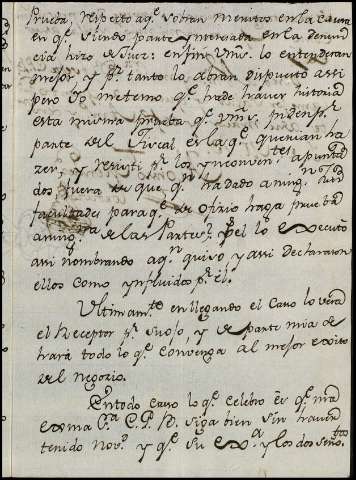 Prueba, respecto a q.e votran menrros en la causa
en q.e siendo parte interesada en la denun
cia hizo de Juez: en fin Vms. lo entenderan
mejor y p.r tanto lo abran dispuesto assi
pero Yo me temo q.e ha de haver historia
esta misma prueba q.e Vms. piden p.r
parte del Fiscal es la q.e querian ha
zer, y resisti p.r los ynconven.tes apunta
dos fuera de que q.n ha dado a ning.n
facultades para q.e de oficio haga prueba
a ning.a de las Partes; p.r el lo executo
assi nombrando a q.n quiso y assi declararon
ellos como ynfluidos p.r el.
Ultimam.te en llegando el Caso lo vera
el Receptor p.r suyo, y de parte mia se
hará todo lo q.e convenga al mejor exito
del negozio.
En todo caso lo q.e celebro es q.e mi
exma S.ra C. P. D. siga bien sin haver
tenido nov.d y q.e su ex.a y los dos señ.tos